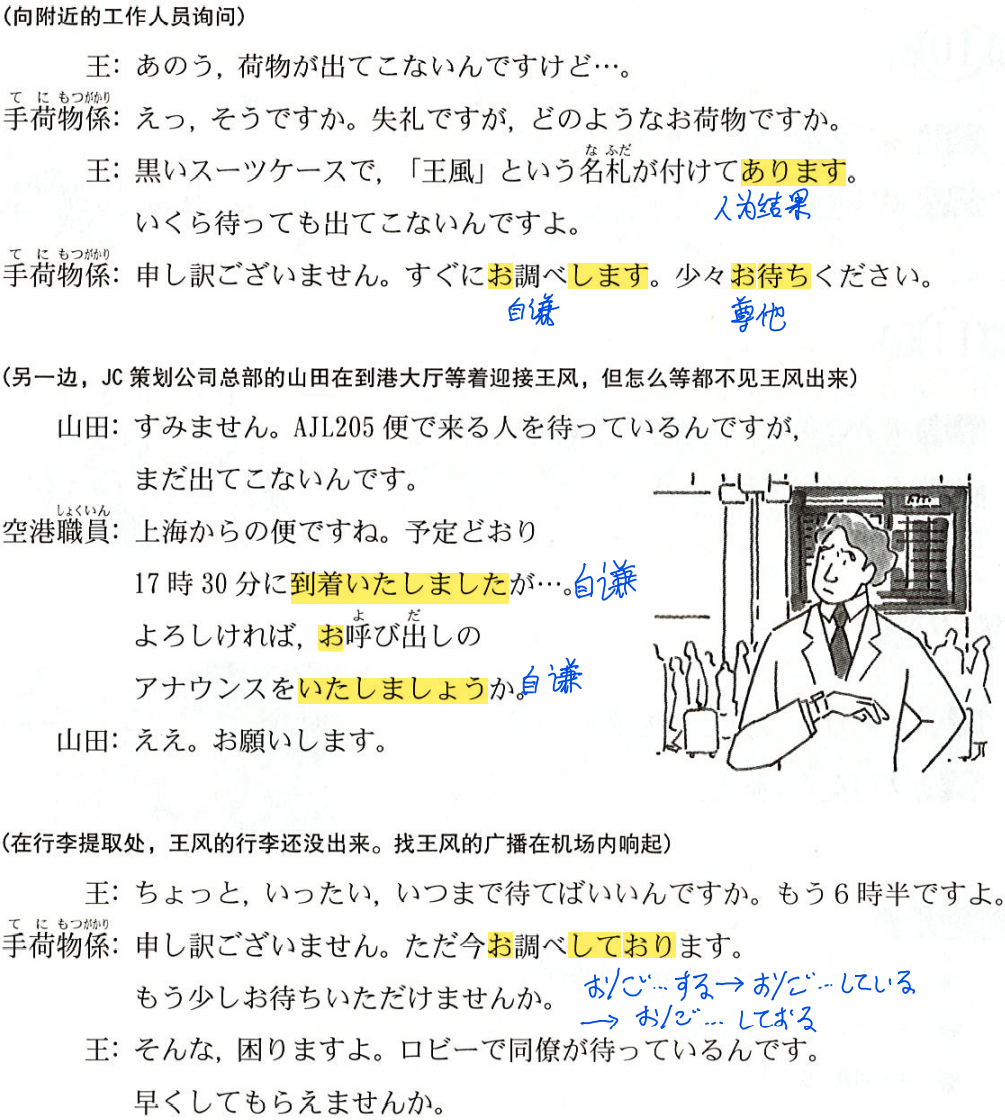 (向附近的工作人员询问)
王: あのう, 荷物が出てこないんですけど…。
手荷物係: えっ, そうですか。失礼ですが, どのようなお荷物ですか。
王: 黒いスーツケースで, 「王風」という名札が付けてあります。
人为结果
いくら待っても出てこないんですよ。
手荷物係: 申し訳ございません。すぐにお調べします。少々お待ちください。
自谦 尊他
(另一边, JC 策划公司总部的山田在到港大厅等着迎接王风, 但怎么等都不见王风出来)
山田: すみません。AJL205 便で来る人を待っているんですが,
まだ出てこないんです。
空港職員: 上海からの便ですね。予定どおり
17 時 30 分に到着いたしましたが…。自谦
よろしければ, お呼び出しの
アナウンスをいたしましょうか。自谦
山田: ええ。お願いします。
(在行李提取处, 王风的行李还没出来。找王风的广播在机场内响起)
王: ちょっと, いったい, いつまで待てばいいんですか。もう6時半ですよ。
手荷物係: 申し訳ございません。ただ今お調べしております。
もう少しお待ちいただけませんか。
お/ご…する→お/ご…している
→お/ご…しておる
王: そんな, 困りますよ。ロビーで同僚が待っているんです。
早くしてもらえませんか。